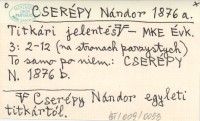 CSERÉPY Nándor 1876 a.
Titkári jelentés V - MKE Évk.
3: 2-12 (na stronach parzystych)
To samo po niem.: CSERÉPY
N. 1876 b.
V Cserépy Nándor egyleti
titkártól.